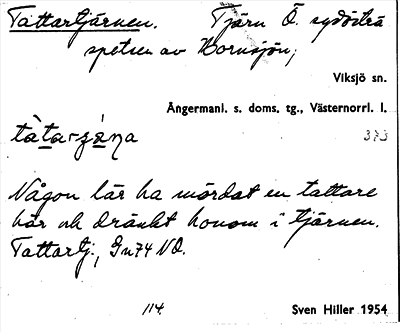 Tattartjärnen. Tjärn Ö. sydöstra
spetsen av Hornsjön;
Viksjö sn.
Ångermanl. s. doms. tg., Västernorrl. l.
373
Någon lär ha mördat en tattare
här och dränkt honom i tjärnen.
Tattartj., Gn 74 NO.
114
Sven Hiller 1954